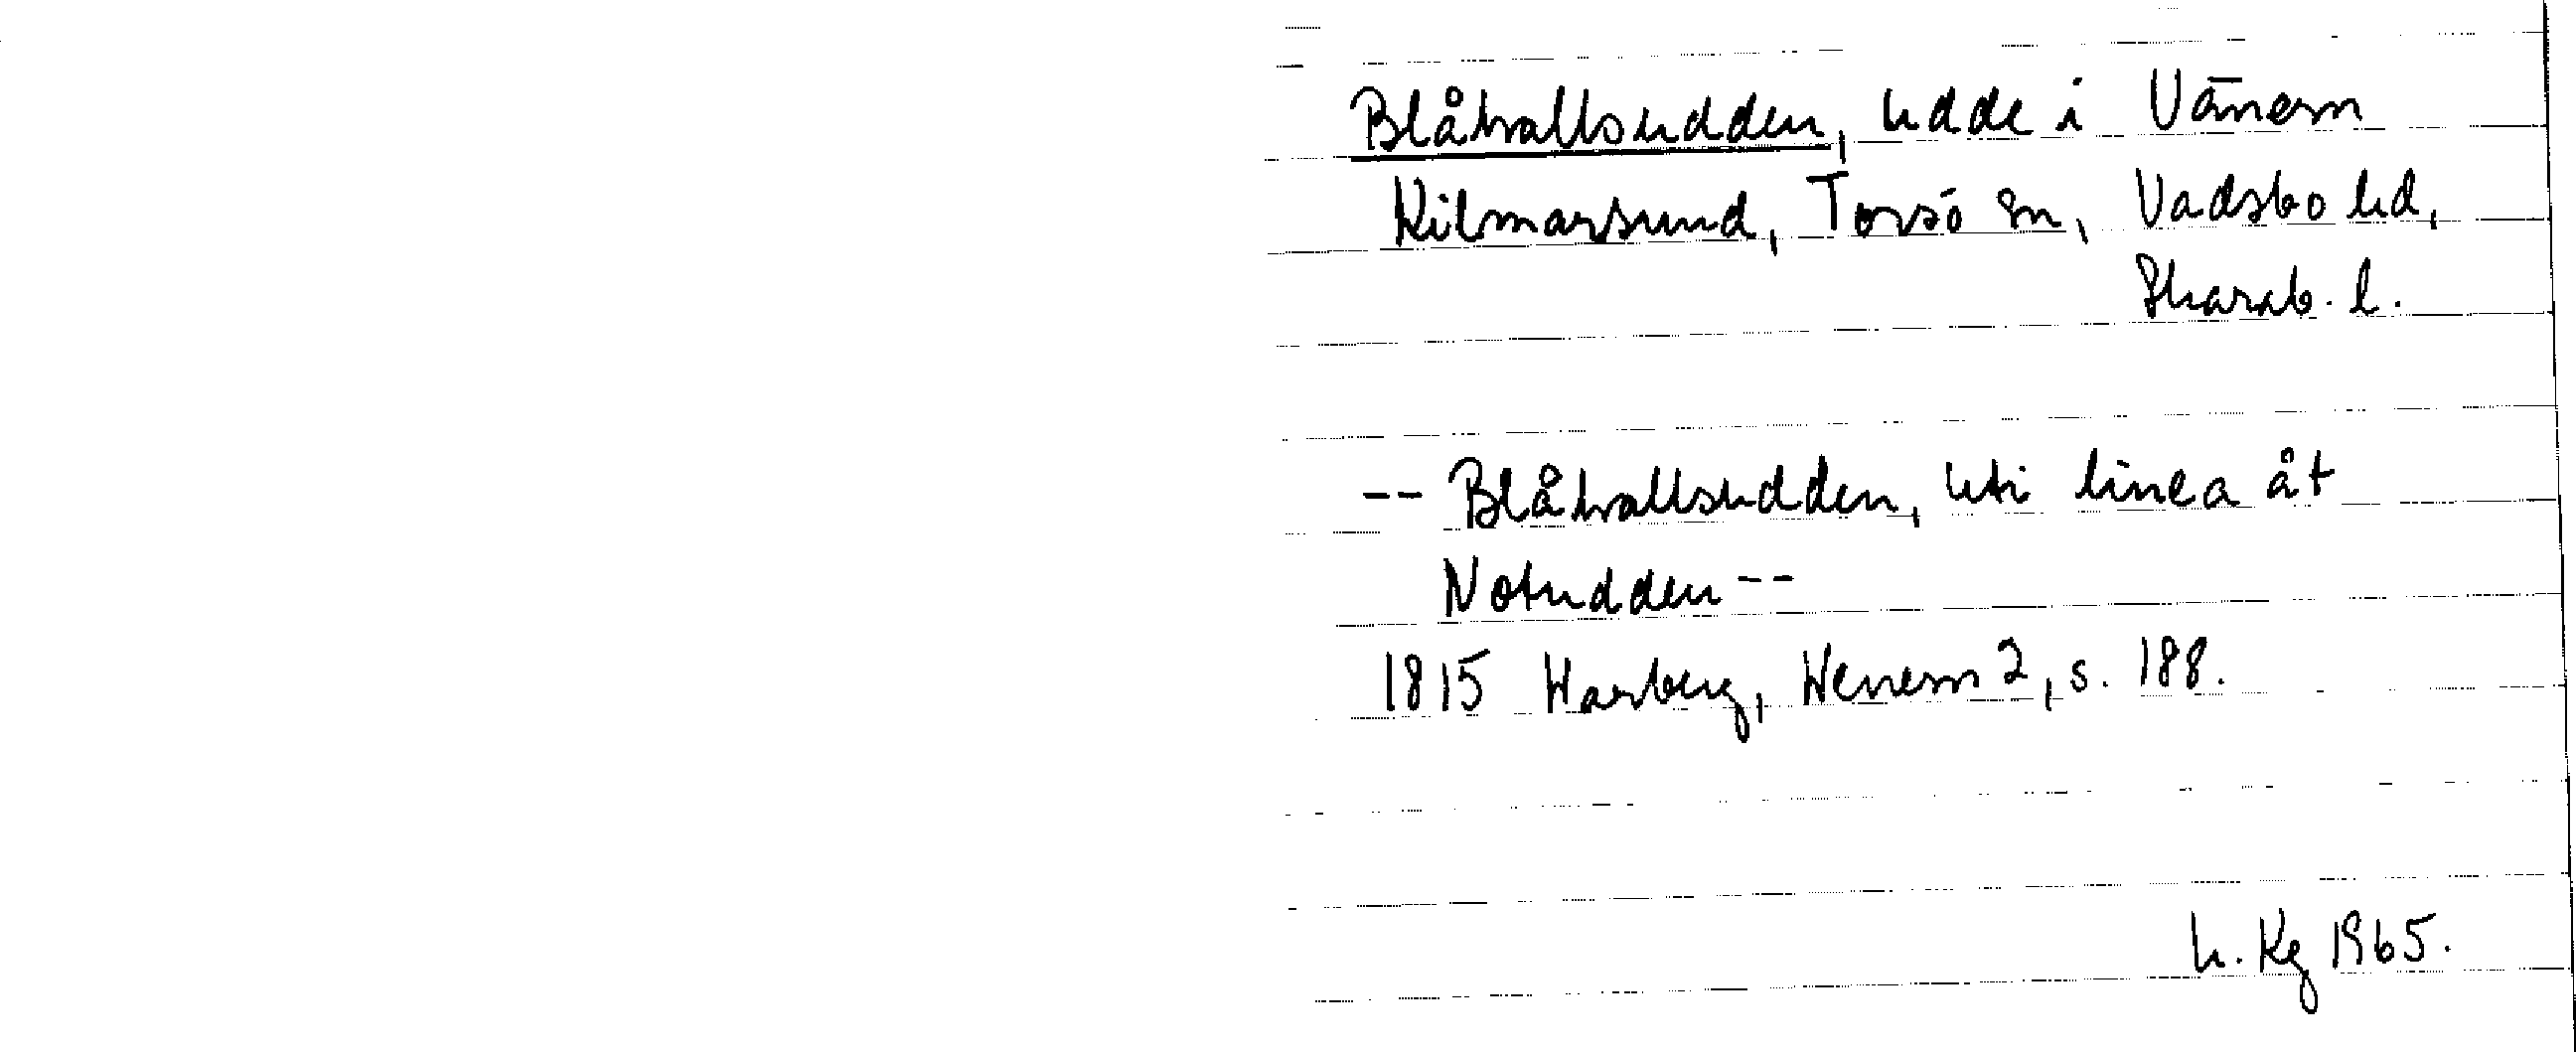 Blåhallsudden, udde i Vänern
Kilmarsund, Torsö sn, Vadsbo hd,
Skarab. l.
-- Blåhallsudden, uti linea åt
Notudden --
1815 Warberg, Wenern 2, s. 188.
U. Kg 1965.